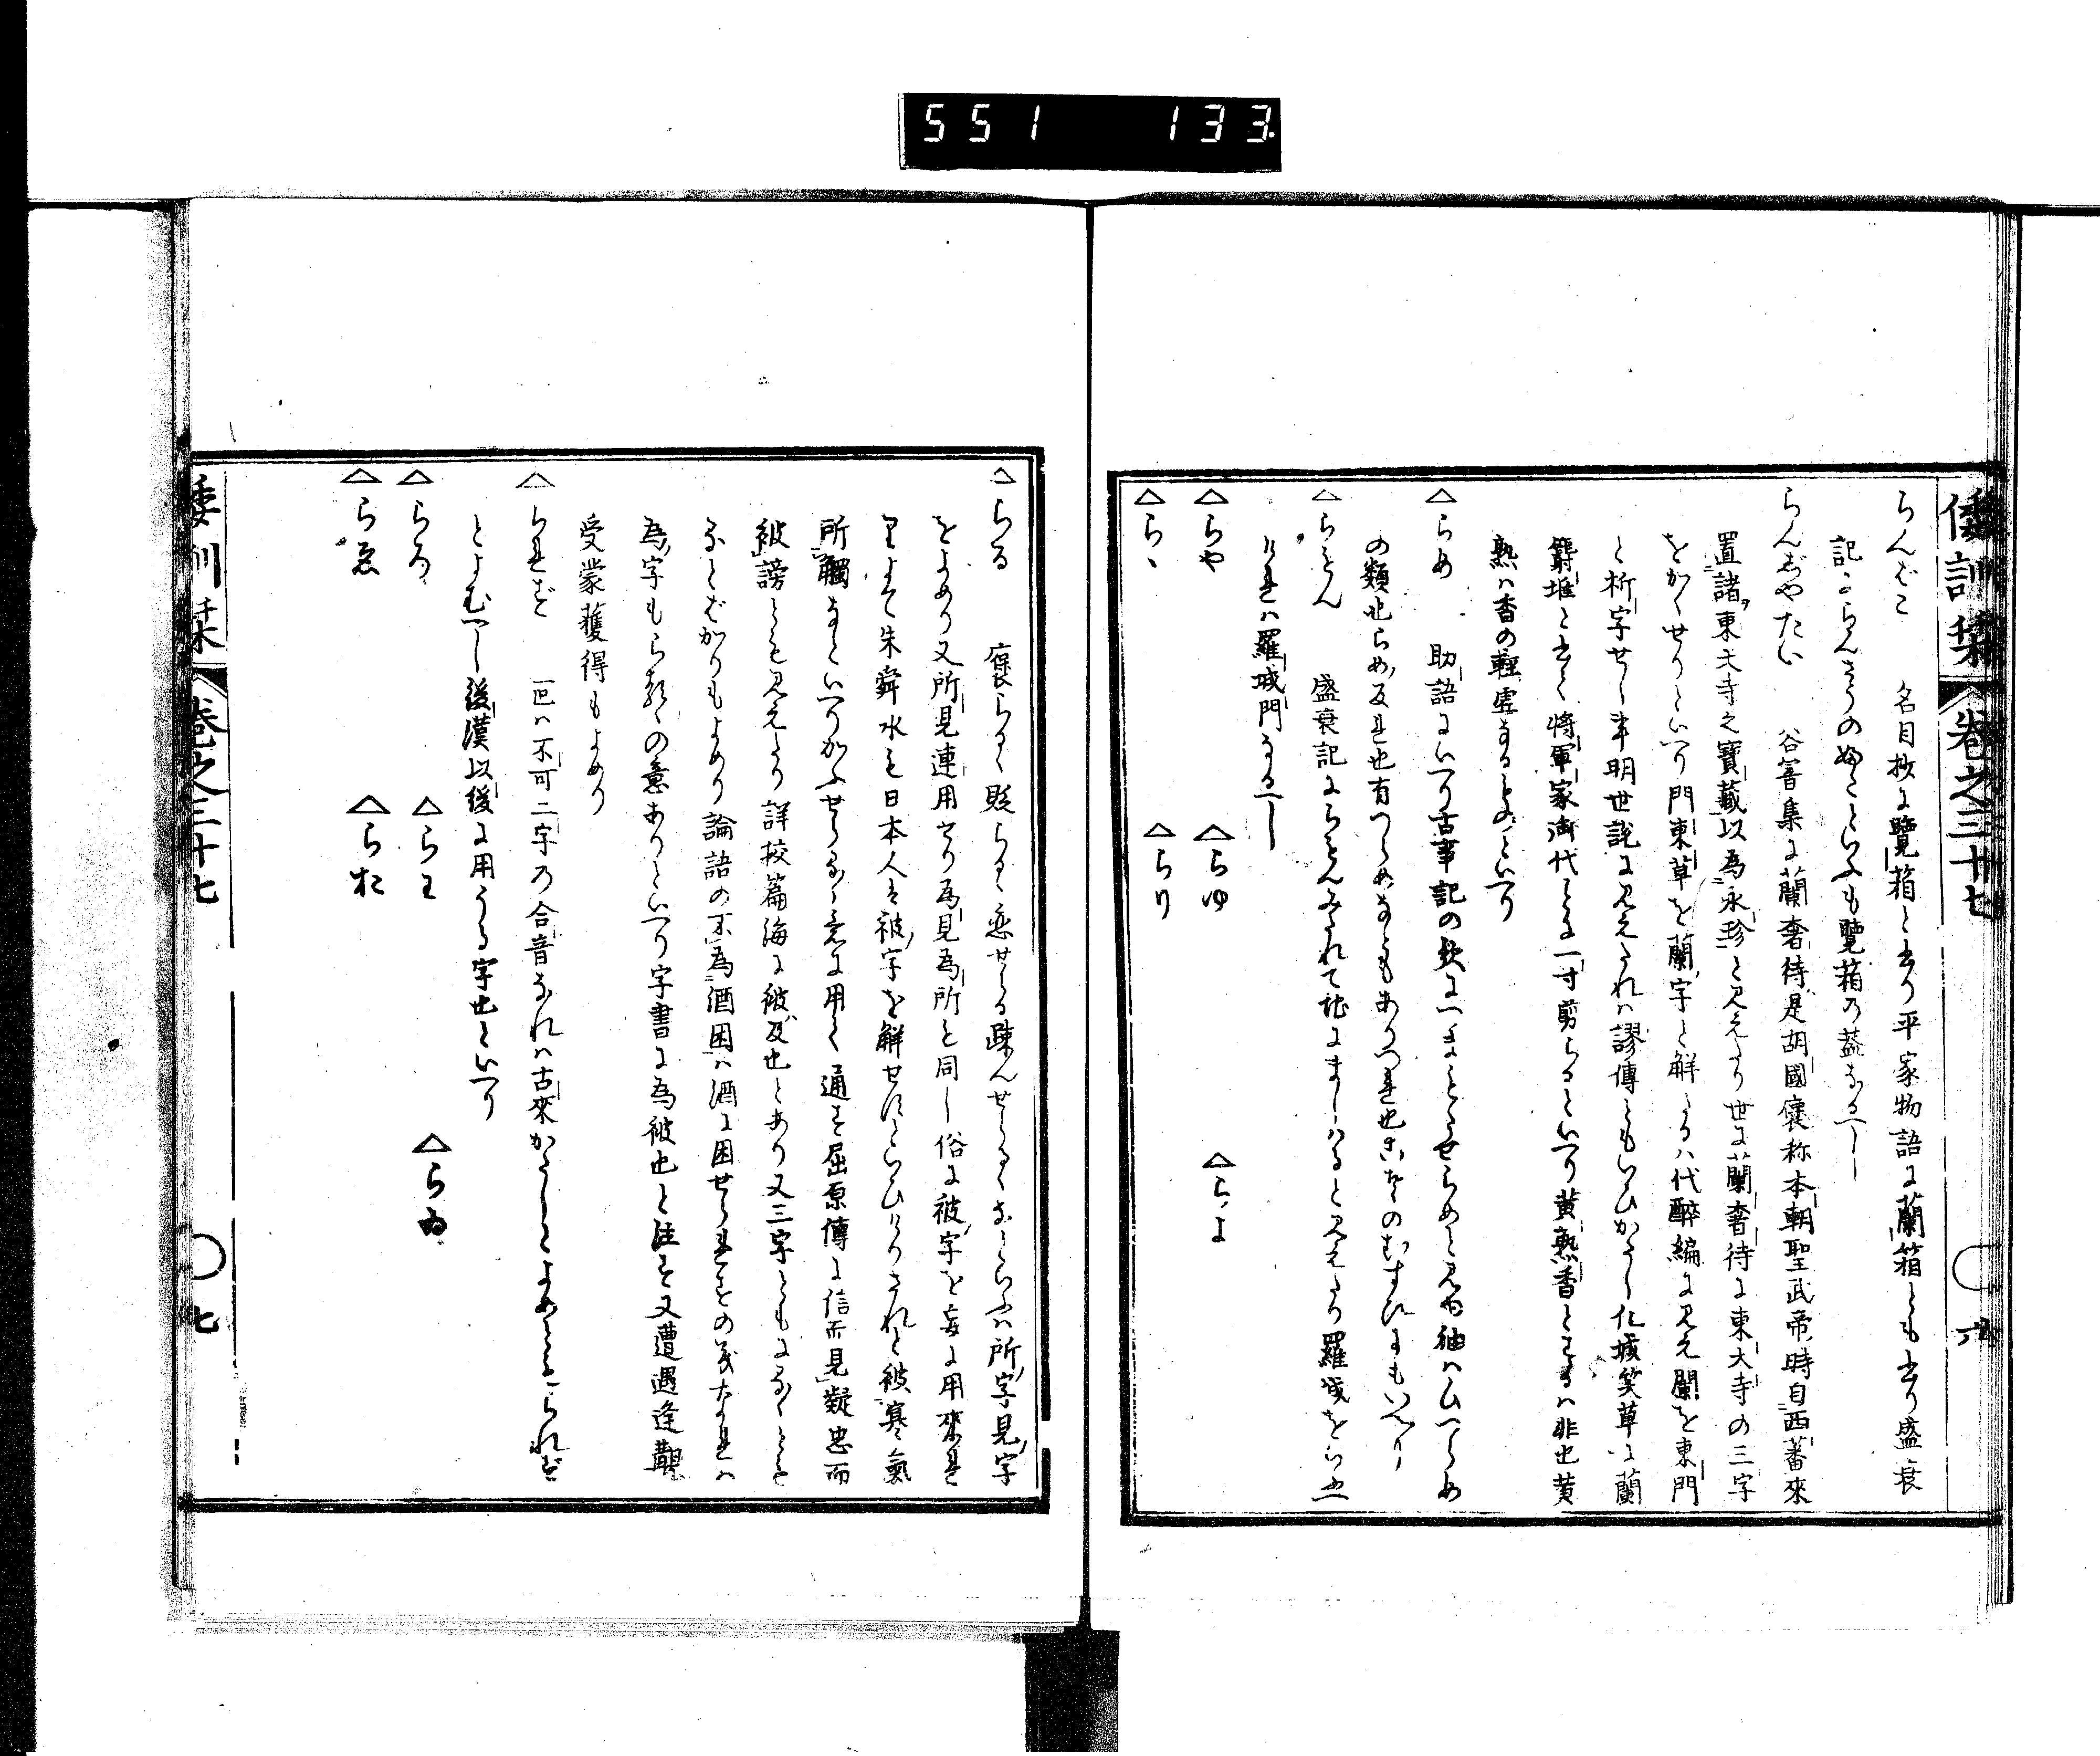 551 133
倭訓栞 巻之三十七 六
らんばこ 名目抄に覽箱と書り平家物語に蘭箱とも書り盛衰
記にらんさうのふたといふも覽箱の蓋なるへし
らんじやたい 谷響集に蘭奢待是胡國褒称本朝聖武帝時自西蕃來
置諸東大寺之寶藏以為永珍と見えたり世に蘭奢待に東大寺の三字
をかくせりといへり門東草を蘭字と解するハ代醉編に見え闌を東門
と析字せし事明世説に見えたれハ謬傳ともいひかたし化城笑草に蘭
麝堆と書く將軍家御代に一寸剪らるといへり黄熟香とするハ非也黄
熟ハ香の輕虚なるもの也といへり
△らめ 助語にいへり古事記の歌に
の類也らめ反れ也有つらめなともあり
△らもん 盛衰記にらもん 羅城を
けれハ羅城門なるへし
△らや △らゆ △らよ
△らゝ △らり
△らる 褒らるゝ貶らるゝ恋せらる疎んせらるゝなといふハ所字見字
をよめり又所見連用せり為見為所も同し俗に被字を妄に用來れ
りよて朱舜水も日本人は被字を解せすといひけりされと被寒氣
所觸なといへりかふせらるゝ意に用て通す屈原傳に信而見疑忠而
被謗とも見えたり詳挍篇海に被及也とあり又三字ともに
なとばかりもよめり論語の不為酒困ハ酒に困せられすの義なれハ
為字もらるゝの意ありといへり字書に為被也と注す又遭遇逢
受蒙獲得もよめり
△られず 叵ハ不可二字の合音なれハ古來かたしとよめともられず
とよむへし後漢以後に用うる字也といへり
△らろ △らわ △らゐ
△らゑ △らお
倭訓栞 巻之三十七 七